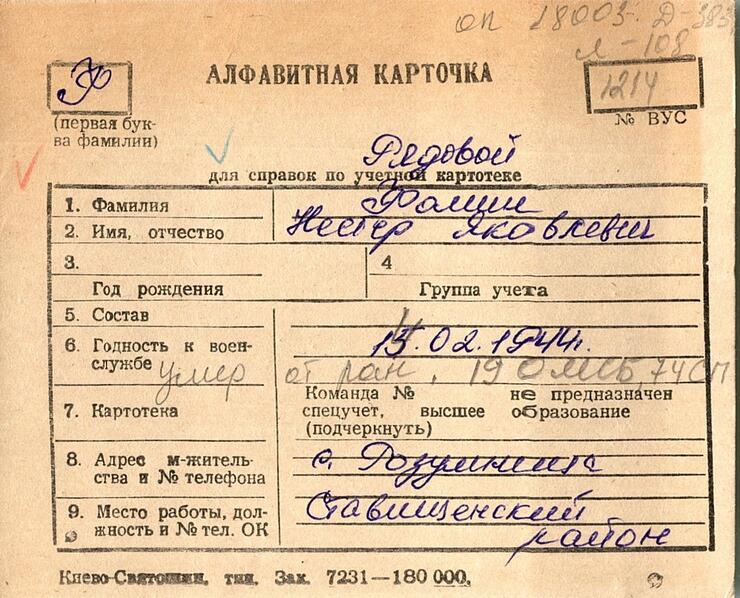 оп 18003 Д-383
л-108
Ф
АЛФАВИТНАЯ КАРТОЧКА
1214
(первая бук-
ва фамилии)
№ ВУС
Рядовой
для справок по учетной картотеке
1. Фамилия Фомин
2. Имя, отчество Нестер Яковлевич
3.
4
Год рождения
Группа учета
5. Состав
6. Годность к воен-
службе
02.1944г.
умер от ран, 19 ОМСБ, 74 СП
7. Картотека
Команда № не предназначен
спецучет, высшее образование
(подчеркнуть)
8. Адрес м-житель-
ства и № телефона
с. Розумница
9. Место работы, дол-
жность и № тел. ОК
Ставищенский
район
Киево-Святошин. тип. Зак. 7231—180 000.